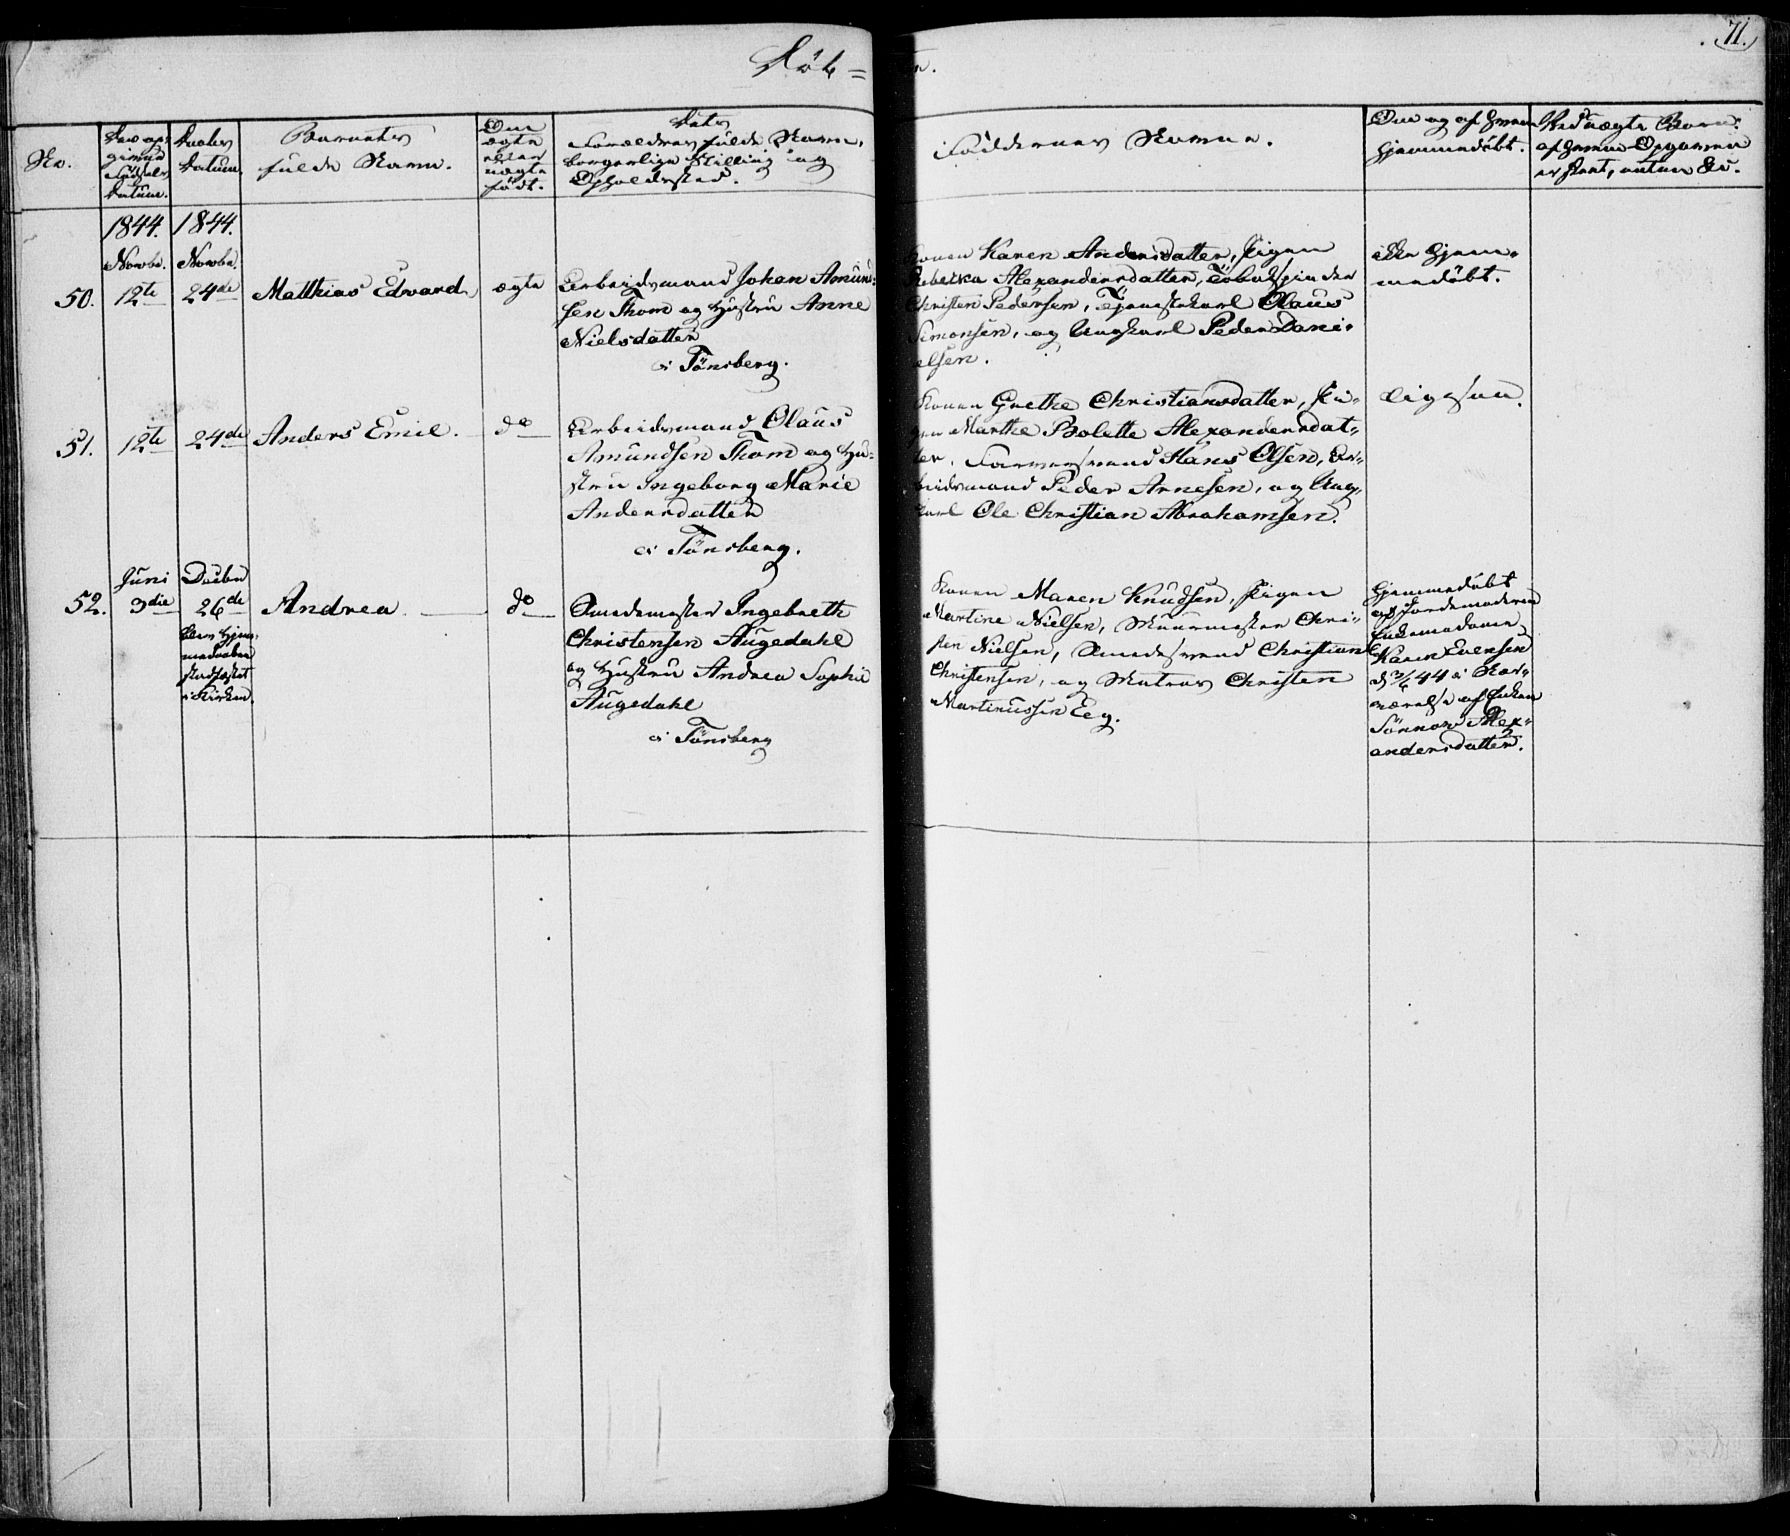 Døb=
71.
No.
Det op-
givne
Fødsels
datum.
Daabs
datum.
Barnets
fulde Navn.
Om
ægte
eller
uægte
født.
Dets
Forældres fulde Navn,
borgerlige Stilling og
Opholdssted.
Faddernes Navne.
Om og af hvem
hjemmedøbt.
Ved uægte Børn:
af hvem Opgaven
er skeet, samt &c.
1844. 1844.
Novbr. Novbr.
50. 12te 24de Matthias Edvard. ægte
Arbeidsmand Johan Amund-
sen Thom og Hustru Anne
Nielsdatter
i Tönsberg.
Konen Karen Andersdatter, Pigen
Rebekka Alexandersdatter, Tobakspinder
Christen Pedersen, Tjenestekarl Olaus
Simonsen, og Ungkarl Peder Dani-
elsen.
ikke hjem-
medøbt.
51. 12te 24de Anders Emil. do
Arbeidsmand Olaus
Amundsen Thom og Hu-
stru Ingeborg Marie
Andersdatter
i Tönsberg.
Konen Grethe Christiansdatter, Pi-
gen Marthe Bolette Alexandersdat-
ter, Farversvend Hans Olsen, Ar-
beidsmand Peder Arnesen, og Ung-
karl Ole Christian Abrahamsen.
ligesaa.
Juni Decbr
52. 3die 26de Andrea do
blev Hjem-
medaaben
stadfæstet
i Kirken.
Smedemester Ingebreth
Christensen Augedahl
og Hustru Andrea Sophie
Augedahl
i Tönsberg
Konen Maren Knudsen, Pigen
Martine Nielsen, Muurmester Chri-
sten Nielsen, Smedesvend Christian
Christensen, og Matros Christen
Martinussen Eeg.
Hjemmedøbt
af Jordemoderen
Enkemadame
Karen Evensen
d 3/6 44 i Nær-
værelse af Enken
Sönnow Alex-
andersdatter.